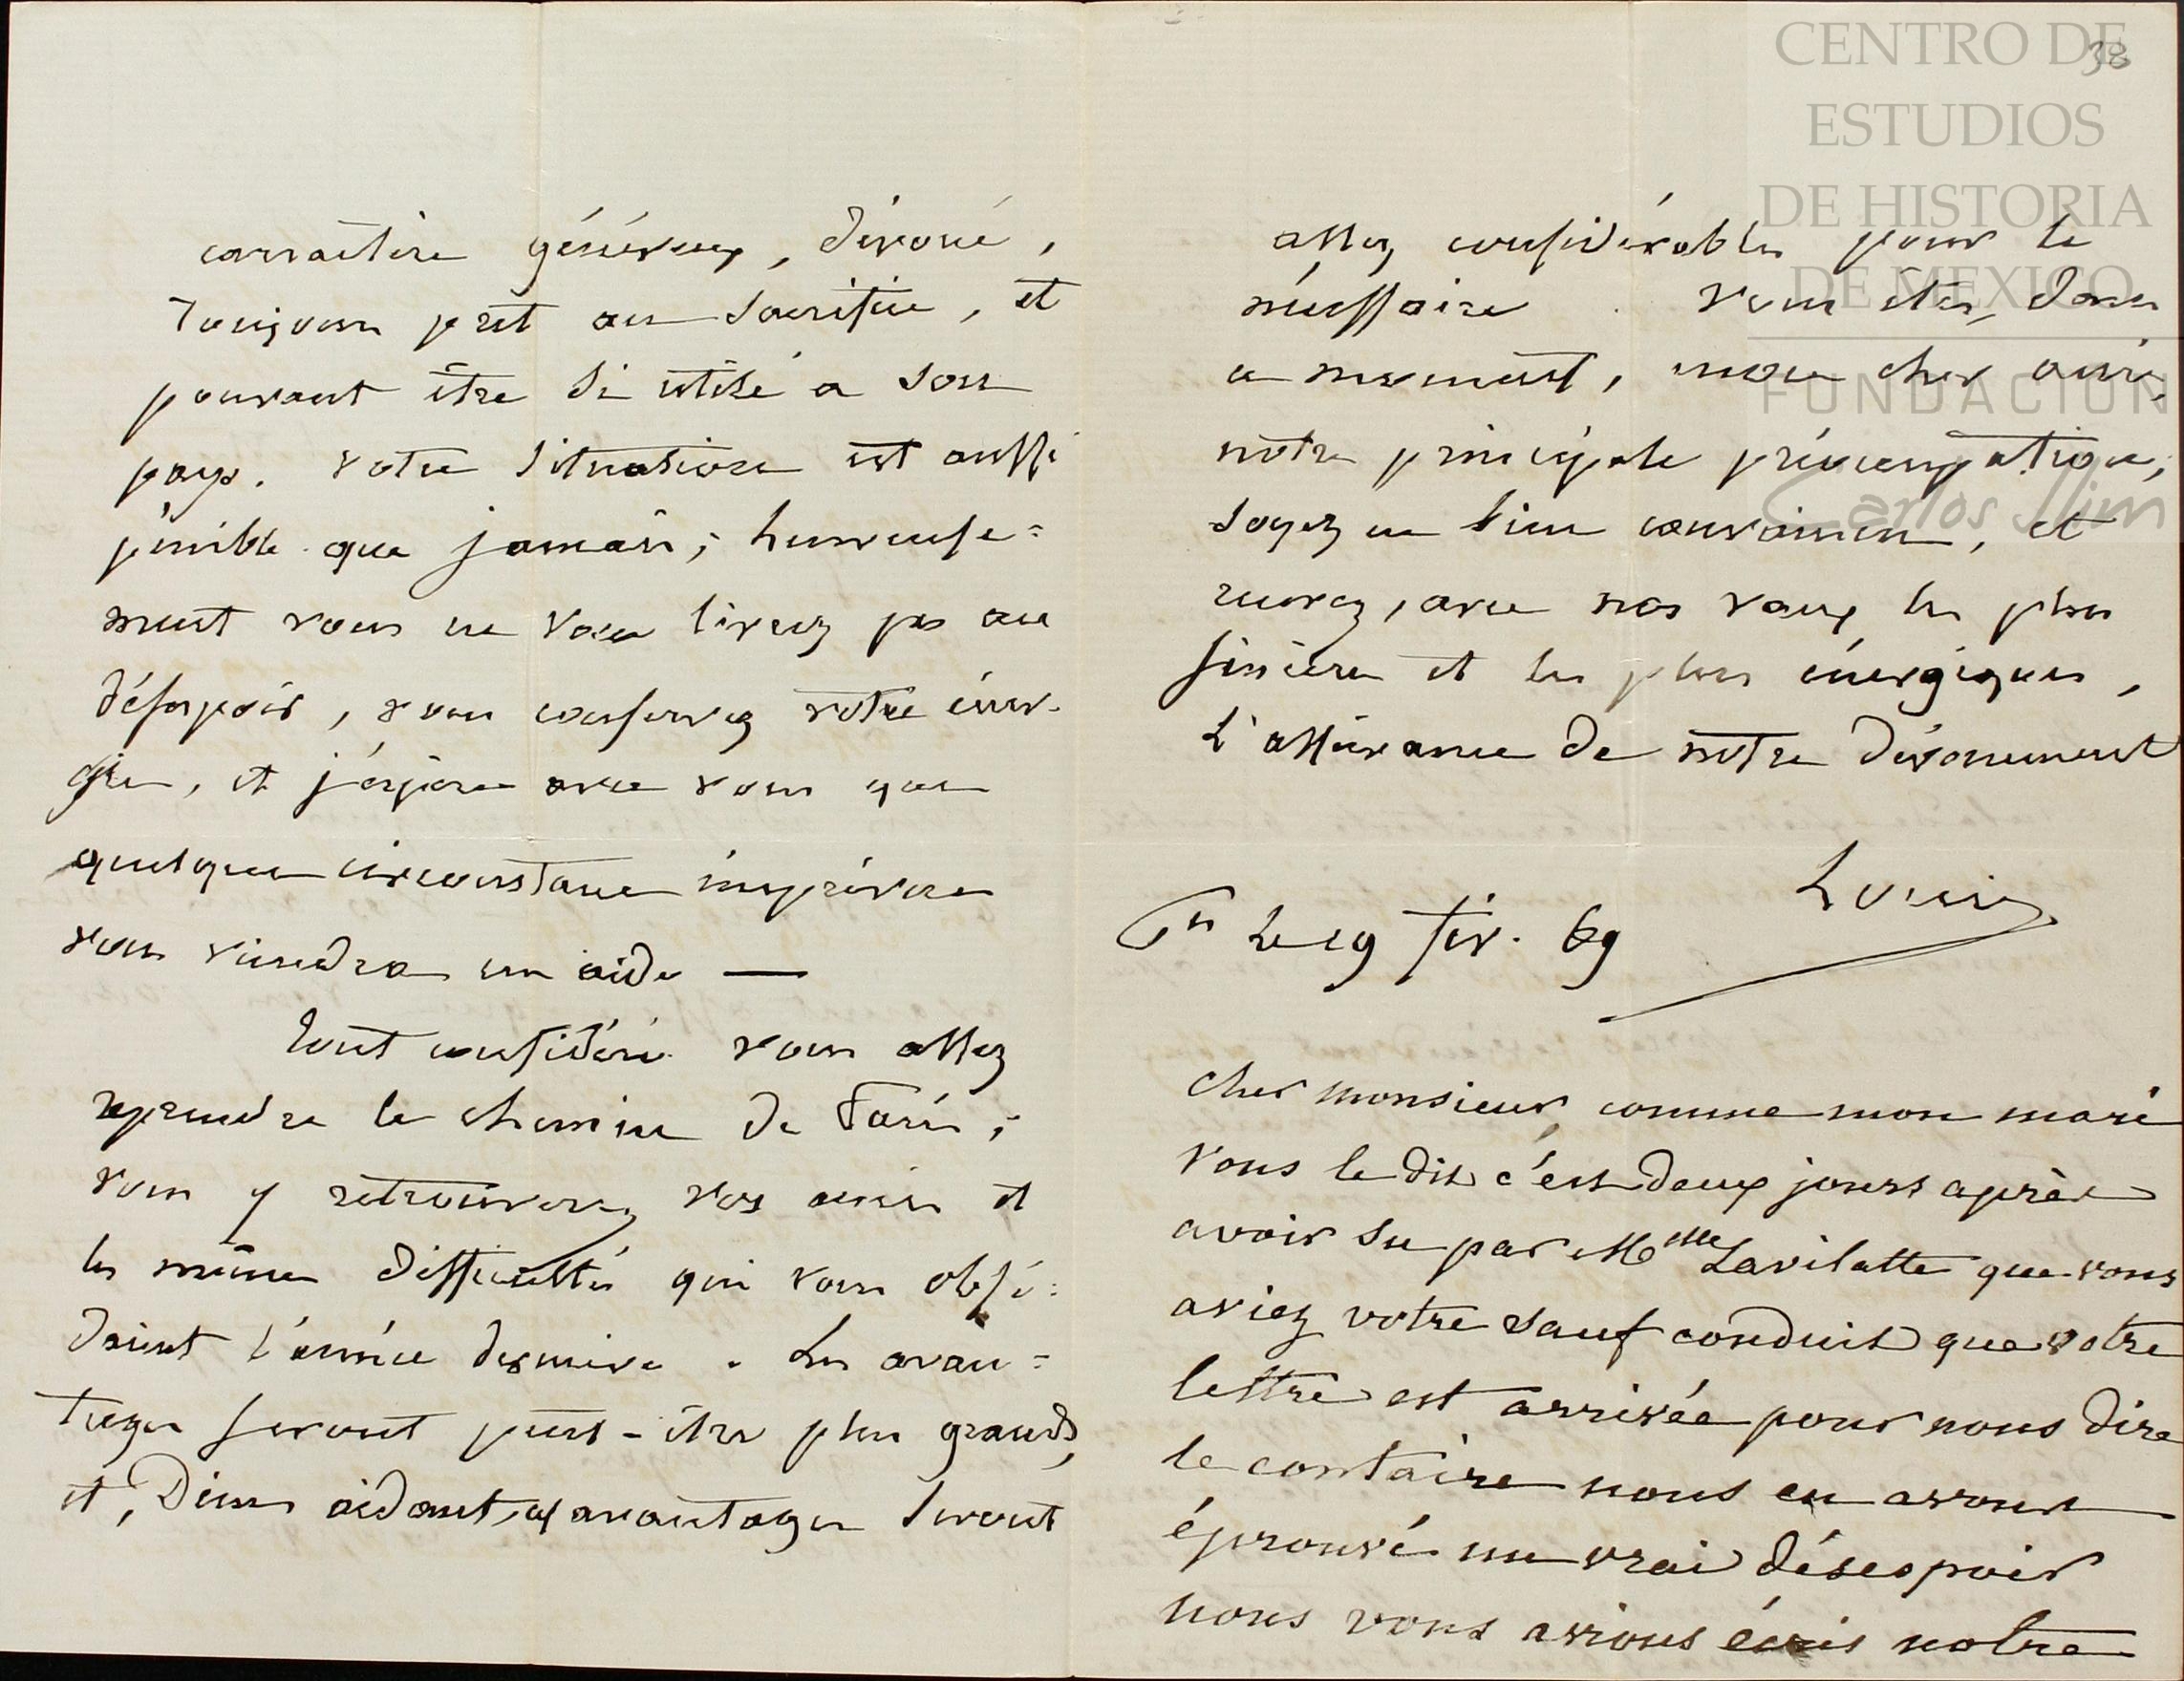 carractère généreux, dévoué,
toujours prêt au sacrifice, et
pouvant être si utile a son
pays. votre situation est aussi
pénible que jamais; heureuse=
ment vous ne vous livrez pas au
désespoir, vous conservez votre éner-
gie, et j'espère avec vous que
quelque circonstance imprévue
vous viendra en aide —
tout considéré vous allez
reprendre le chemin de Paris;
vous y retrouverez vos amis et
les même difficultés qui vous obsé=
daient l'année dernière. Les avan=
tages seront peut-être plus grands,
et, Dieu aidant, ces avantages seront
38
assez considérables pour le
nécessaire. Vous êtes, dans
ce moment, mon cher ami,
notre principale préoccupation,
soyez en bien convaincu, et
recevez, avec nos vœux les plus
sincères et les plus énergiques,
L'assurance de notre dévouement
Louis
Le 19 fév. 69
cher monsieur, comme mon mari
vous le dit c'est deux jours après
avoir su par Melle Lavilatte que vous
aviez votre sauf conduit que votre
lettre est arrivée pour nous dire
le contaire nous en avons
éprouvé un vrai désespoir
nous vous avions écris notre
CENTRO DE
ESTUDIOS
DE HISTORIA
DE MEXICO
FUNDACIÓN
Carlos Slim